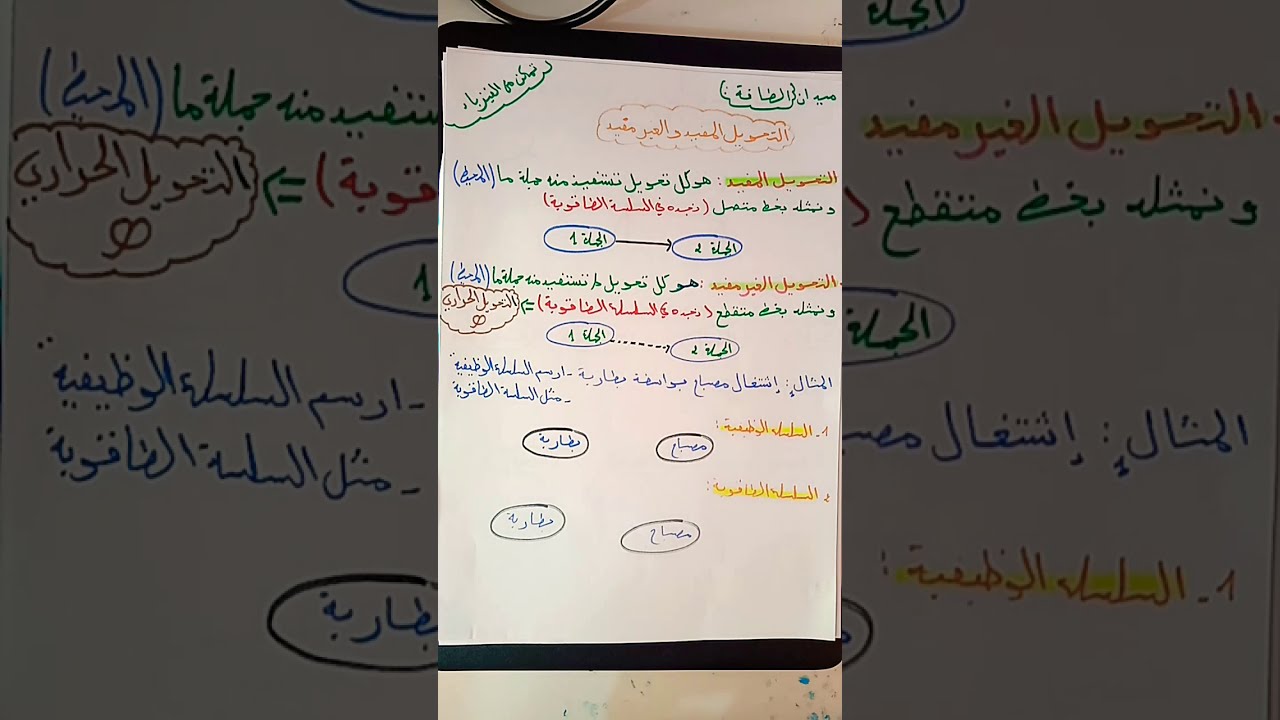 ميدان الطاقة :
لتمكن من الفيزياء
التحويل المفيد والغير مفيد
التحويل المفيد : هو كل تحويل تستفيد منه جملة ما (المحيط)
ونمثله بخط متصل (نجده في السلسلة الطاقوية)
الجملة 1 الجملة 2
- التحويل الغير مفيد : هو كل تحويل لا تستفيد منه جملة ما (المحيط)
ونمثله بخط متقطع (نجده في السلسلة الطاقوية) => التحويل الحراري Q
الجملة 1 الجملة 2
المثال: إشتغال مصباح بواسطة بطارية - ارسم السلسلة الوظيفية
- مثل السلسلة الطاقوية
1 - السلسلة الوظيفية :
بطارية مصباح
2 السلسلة الطاقوية :
بطارية
مصباح